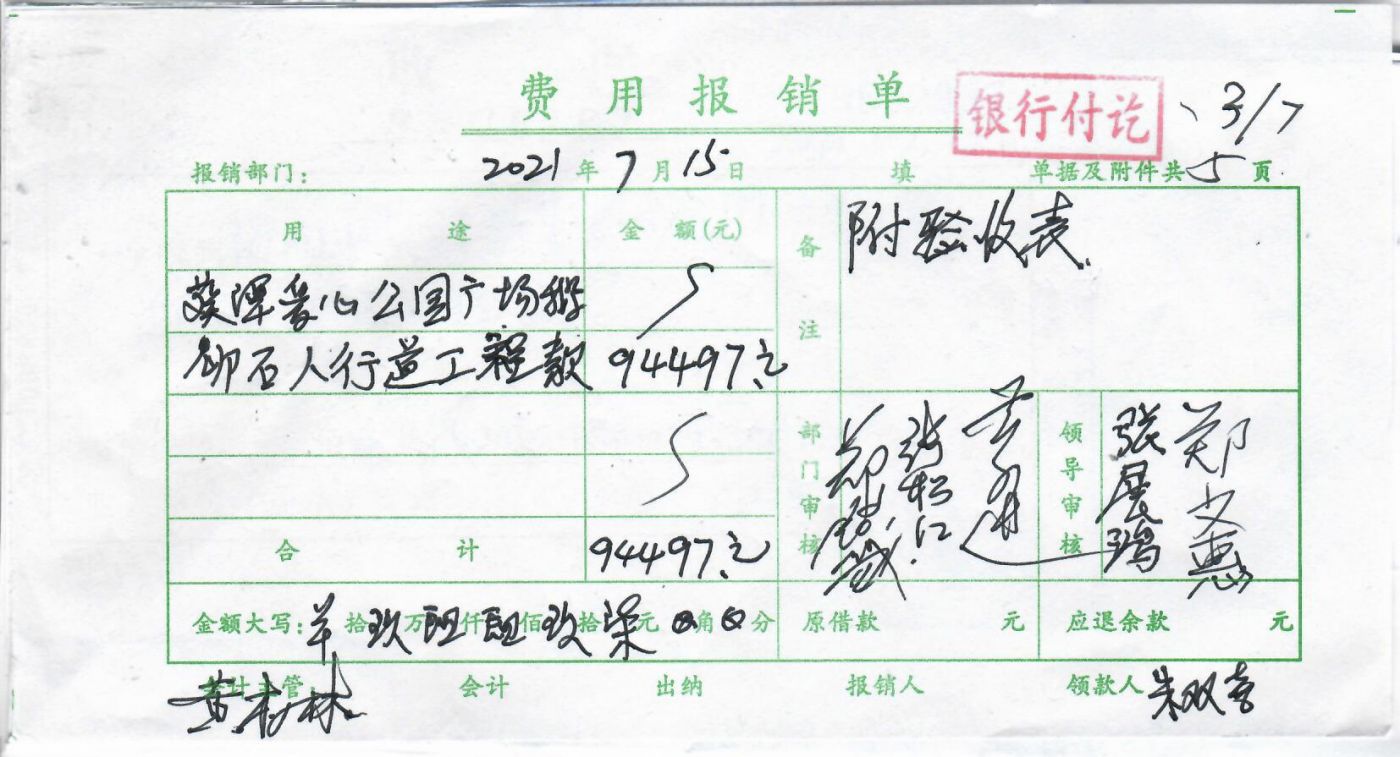 费用报销单
银行付讫
3/7
报销部门: 2021年7月15日 填 单据及附件共5页
用途 金额(元) 备注 附验收表
葵潭爱心公园广场
石人行道工程款 94497元
部门审核 领导审核 张展鸿 郑文惠
合计 94497元
金额大写: 拾玖万肆仟肆佰玖拾柒元0角0分 原借款 元 应退余款 元
会计主管: 会计 出纳 报销人 领款人 朱双喜
黄林